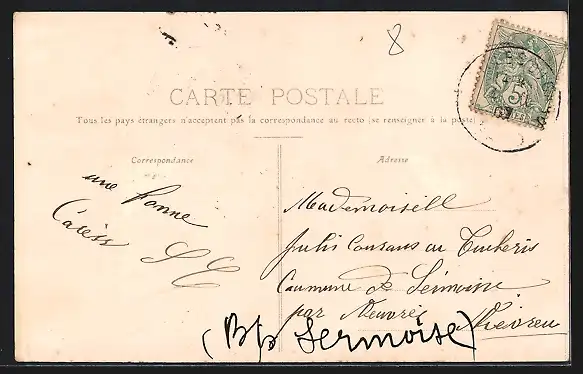 8
CARTE POSTALE
Tous les pays étrangers n'acceptent pas la correspondance au recto (se renseigner à la poste)
Correspondance
Adresse
une bonne
Caress
Mademoiselle
Julis au
Commune de Sermoise
par Nevers
Nièvre
(Bp Sermoise)